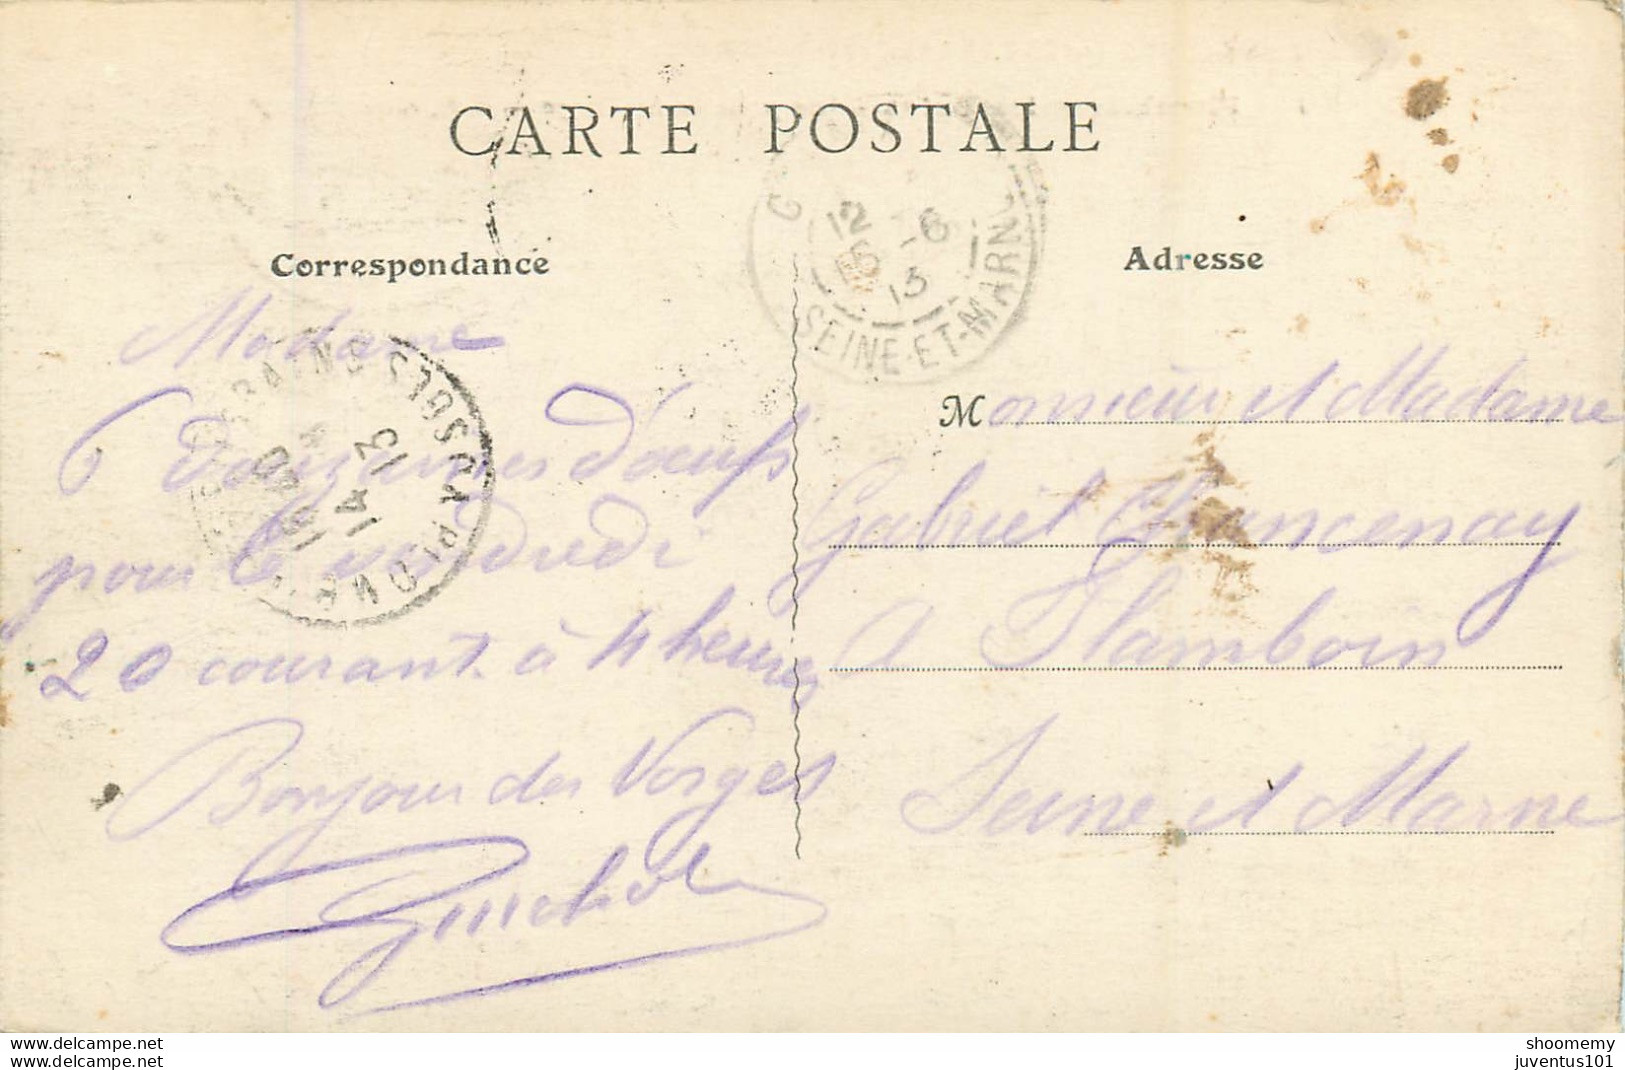 CARTE POSTALE
12 -6
13
SEINE-ET-MARNE
Correspondance
Adresse
Madame
6 douzaines d'oeufs
pour le vendredi
20 courant à 4 heures
Bonjour des Vosges
Monsieur et Madame
Gabriel Chancenay
à Flamboin
Seine et Marne
14
13
delcampe.net
delcampe.net
shoomemy
juventus101